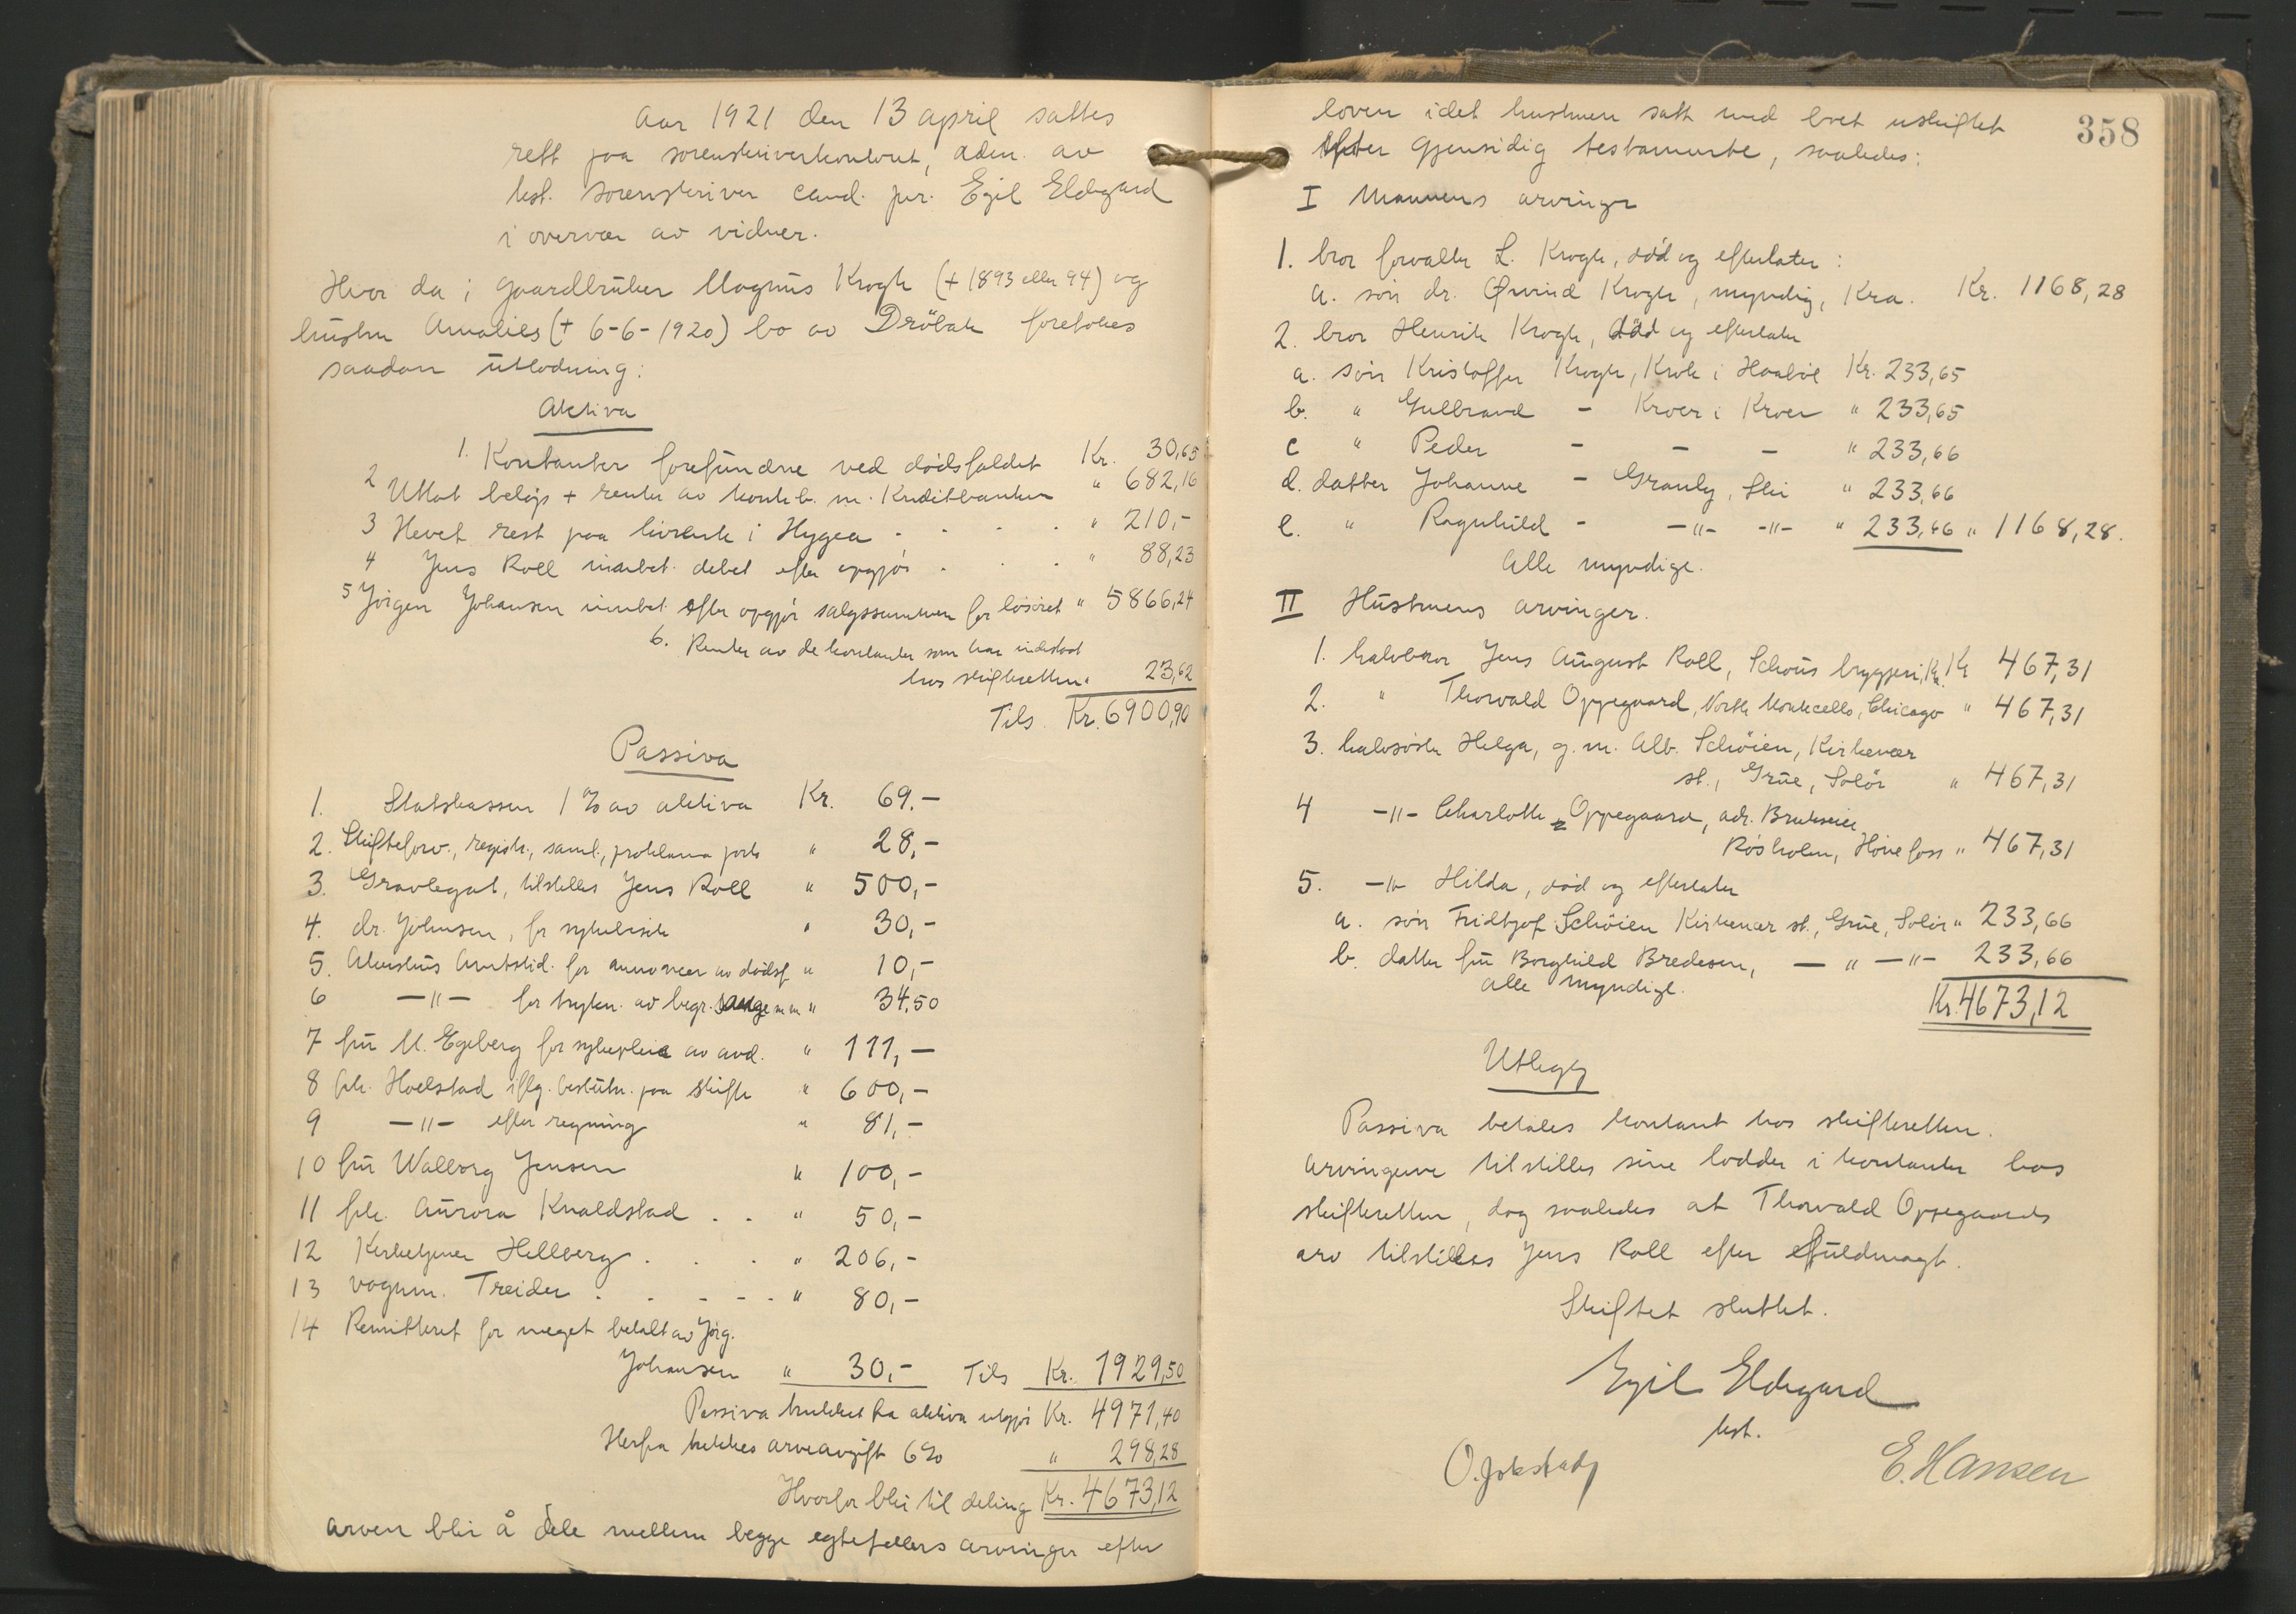 Aar 1921 den 13 april sattes
rett paa sorenskriverkontoret, adm. av
best. sorenskriver cand. jur. Egil Eldegard
i overvær av vidner.
Hvor da i gaardbruker Magnus Krogh (+ 1893 eller 94) og
hustru Amalies (+ 6-6-1920) bo av Drøbak foretokes
saadan utlodning:
Aktiva
1. Kontanter forefundne ved dødsfaldet Kr. 30,65
2 Uttat beløp + renter av kontrab. m. Kreditbanken " 682,16
3 Hevet rest paa livrente i Hygea . . . . " 210,-
4 Jens Roll indbet. debet efter opgjør . . . " 88,23
5 Jørgen Johansen indbet. efter opgjør salgssummen for løsøret " 5866,24
6. Renter av de kontanter som har indestaat
hos skifteretten " 23,62
Tils. Kr. 6900,90
Passiva
1. Statskassen 1 % av aktiva Kr. 69.-
2. Skifteforv., registr., saml., proklama porto " 28,-
3. Gravlegat, tilstilles Jens Roll " 500,-
4. dr. Johnsen, for sykebesøk " 30,-
5. Akershus Amtstid. for annoncer av dødsf. " 10,-
6 -"- for trykn. av begr. sange m m " 34,50
7 fru M. Egeberg for sykepleie av avd. " 111,-
8 frk. Hoelstad iflg. beslutn. paa skifte " 600,-
9 -"- efter regning " 81,-
10 fru Walborg Jensen " 100,-
11 frk. Aurora Knaldstad . . " 50,-
12 Kirketjener Hellberg . . . " 206,-
13 vognm. Treider . . - - - " 80,-
14 Remitteret for meget betalt av Jørg.
Johansen " 30,- Tils Kr. 1929,50
Passiva trukket fra aktiva utgjør Kr. 4971,40
Herfra trekkes arveavgift 6% " 298,28
Hvorfor blir til deling Kr. 4673,12
Arven blir å dele mellem begge egtefellers arvinger efter
358
loven idet hustruen satt med boet uskiftet
efter gjensidig testamente, saaledes:
I Mannens arvinger
1. bror forvalter L. Krogh, død og efterlater :
a. søn dr. Øivind Krogh, myndig, Kra. Kr. 1168,28
2. bror Henrik Krogh, død og efterlater
a. søn Kristoffer Krogh, Krok i Haabøl Kr. 233,65
b. " Gulbrand - Kroer i Kroer " 233,65
c " Peder - - - " 233,66
d. datter Johanne - Granly, Ski " 233,66
e. " Ragnhild - -"- -"- " 233,66 " 1168,28.
Alle myndige.
II Hustruens arvinger.
1. halvbror Jens August Roll, Schous bryggeri, Kr. Kr 467,31
2. " Thorvald Oppegaard, North Monticello, Chicago " 467,31
3. halvsøster Helga, g. m. Alb. Schøien, Kirkenær
st., Grue, Solør " 467,31
4 -"- Charlotte Oppegaard, adr. Brukseier
Røsholm, Hønefoss " 467,31
5. -"- Hilda, død og efterlater
a. søn Fridtjof Schøien Kirkenær st., Grue, Solør " 233,66
b. datter fru Borghild Bredesen, - " -"- 233,66
alle myndige.
Kr. 4673,12
Utlegg
Passiva betales kontant hos skifteretten.
Arvingene tilstilles sine lodder i kontanter hos
skifteretten, dog saaledes at Thorvald Oppegaards
arv tilstilles Jens Roll efter fuldmagt.
Skiftet sluttet.
Egil Eldegard
best.
O. Jokstad E. Hansen